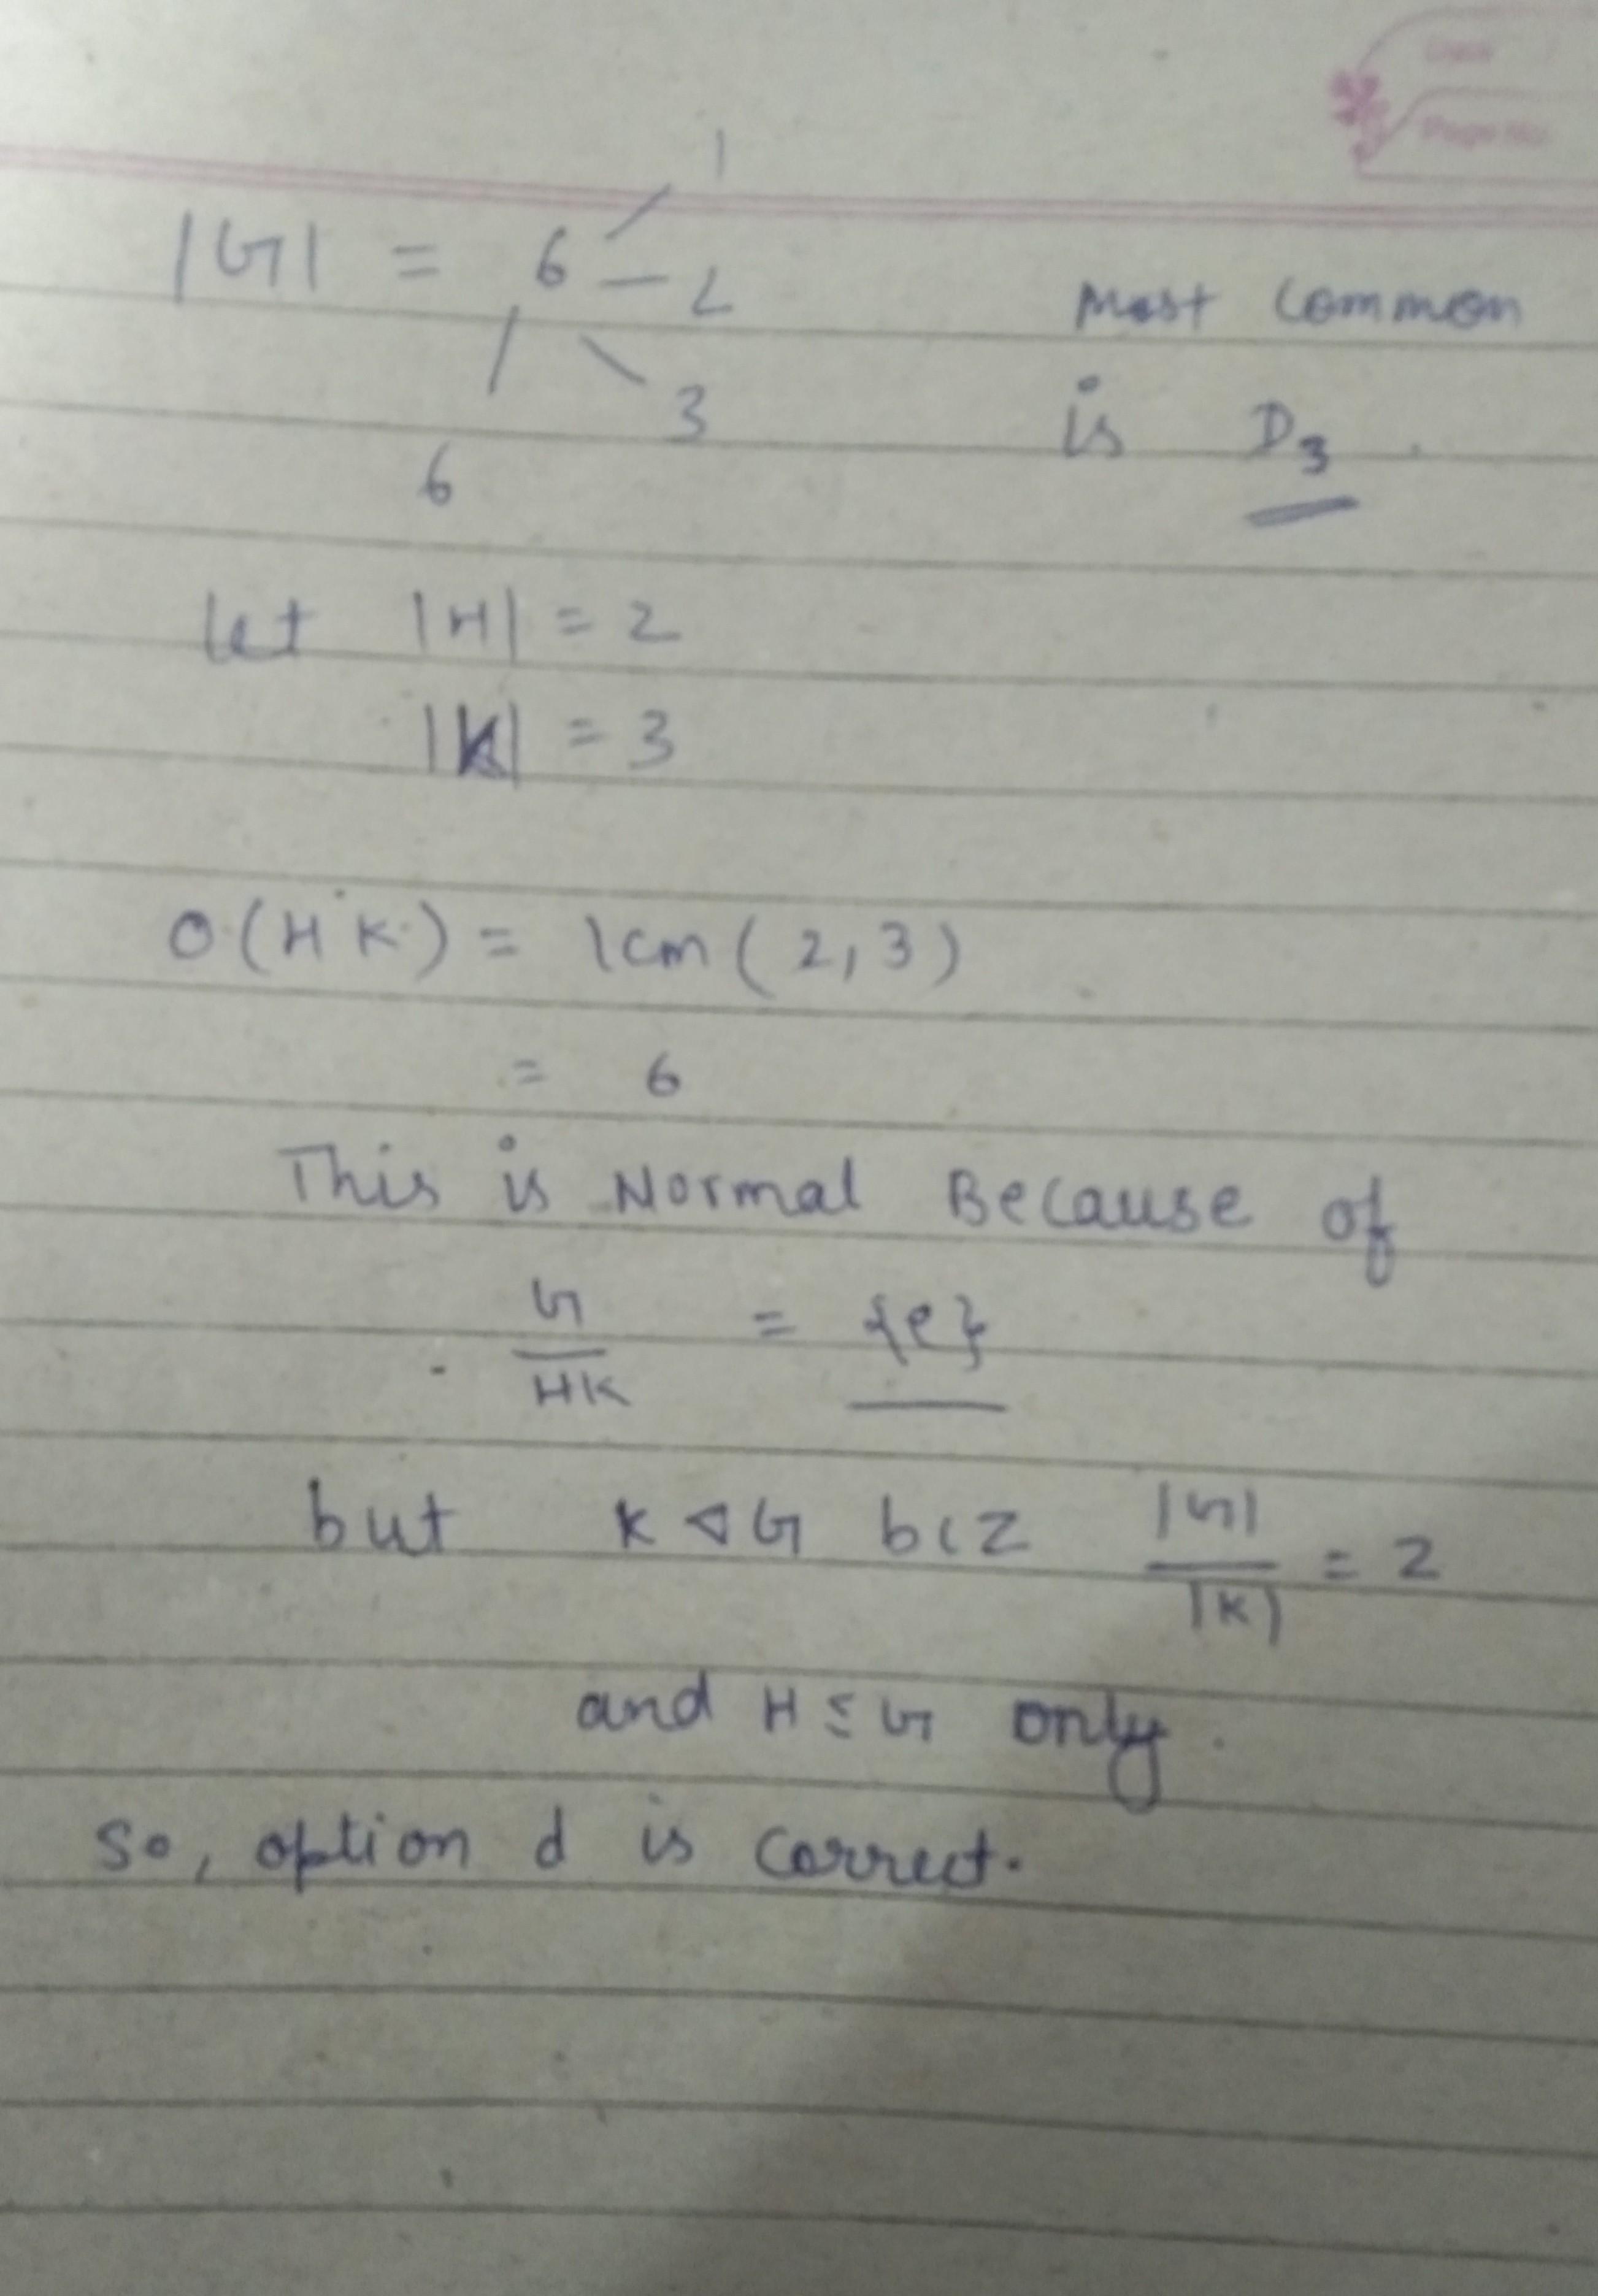 Date
Page No.
1
|G| = 6 - 2
3
6
Most Common
is D3.
let |H| = 2
|K| = 3
O(HK) = lcm(2,3)
= 6
This is Normal Because of
G/HK = {e}
but K ⊲ G bcz |G|/|K| = 2
and H ≤ G only.
So, option d is correct.